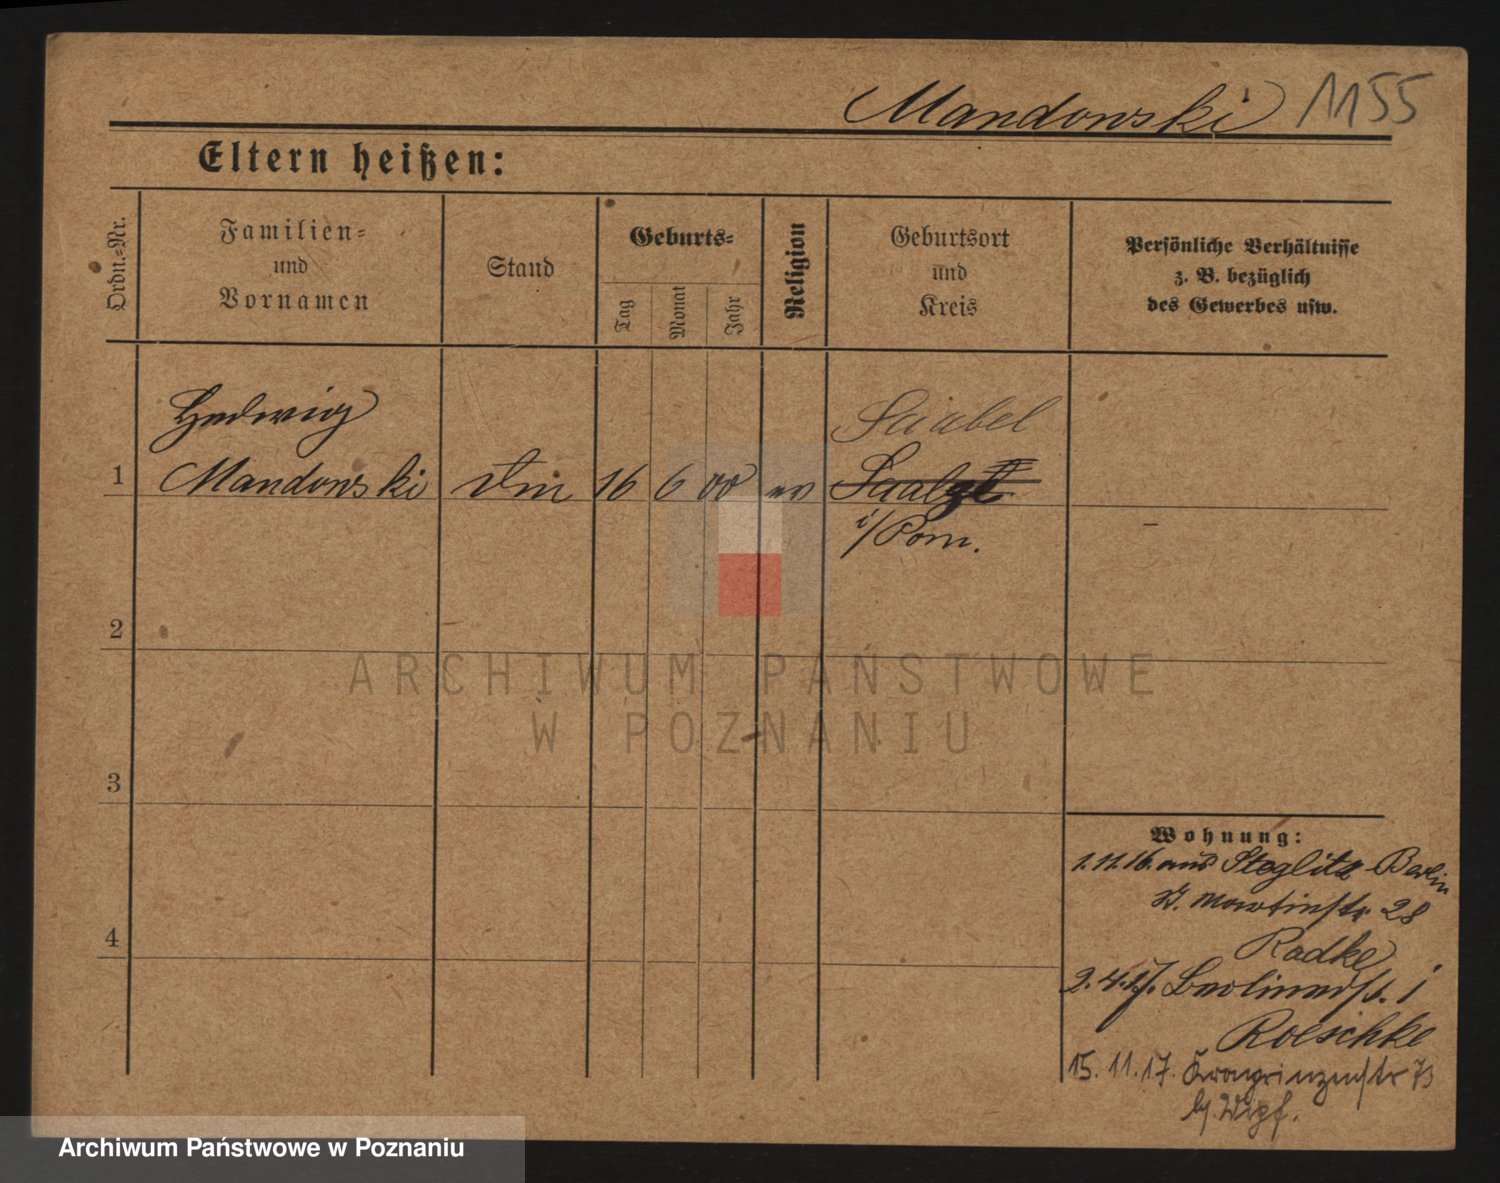 Mandowski 1155
Eltern heißen:
Ordn.=Nr.
Familien=
und
Vornamen
Stand
Geburts=
Tag
Monat
Jahr
Religion
Geburtsort
und
Kreis
Persönliche Verhältnisse
z. B. bezüglich
des Gewerbes usw.
Hedwig
Saabel
1 Mandowski 16 6 00 ev
i/Pom.
2
3
4
Wohnung:
1.11.16. aus Steglitz-Berlin
St. Martinstr. 28
Radke
2.4.17. Berlinerstr. 1
Roeschke
15.11.17. Kronprinzenstr 73
b/
ARCHIWUM PAŃSTWOWE
W POZNANIU
Archiwum Państwowe w Poznaniu